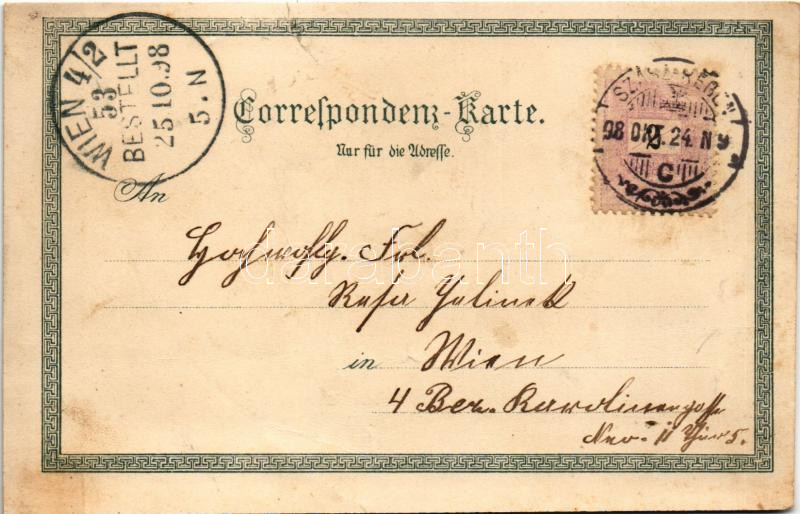 WIEN 4/2
53
BESTELLT
25.10.98
5.N
Correspondenz-Karte.
Nur für die Adresse.
98 OKT. 24. N 9
C
An
Hochwohlg. Frl.
Jelinek
in Wien
4 Bez. Karolinengasse
Nro. 11 Thür 5.
darabanth